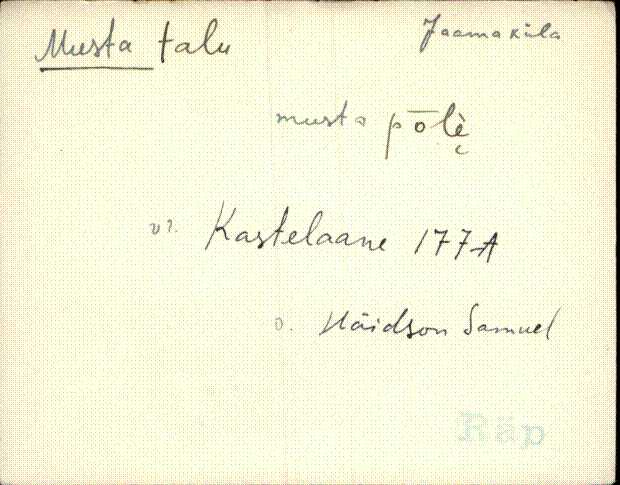 Musta talu Jaamaküla
musta pōlè̬
vt. Kastelaane 177 A
o. Häidson Samuel
Räp